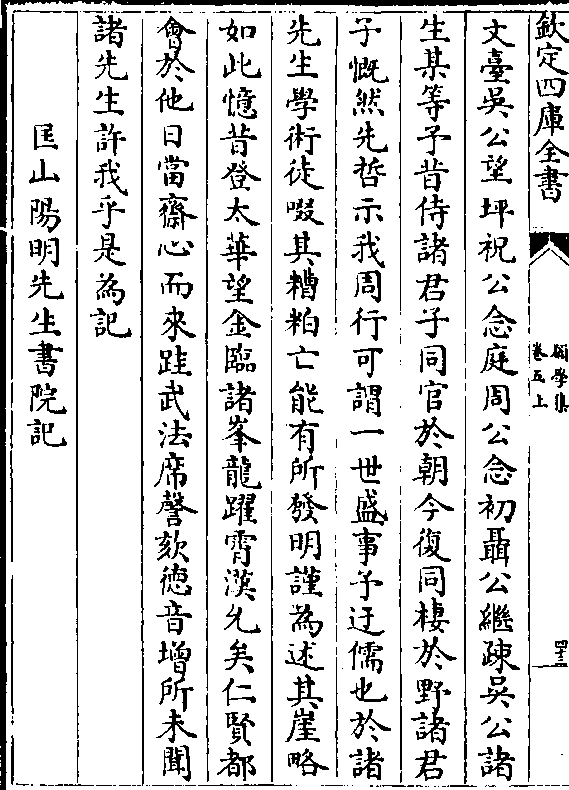 欽定四庫全書
願學集
卷五上
四三
文臺吳公望坪祝公念庭周公念初聶公繼疎吳公諸
生某等予昔侍諸君子同官於朝今復同棲於野諸君
子慨然先哲示我周行可謂一世盛事予迂儒也於諸
先生學術徒啜其糟粕亡能有所發明謹為述其崖略
如此憶昔登太華望金臨諸峯龍躍霄漢允矣仁賢都
會於他日當齋心而來跬武法席謦欬德音增所未聞
諸先生許我乎是為記
匡山陽明先生書院記